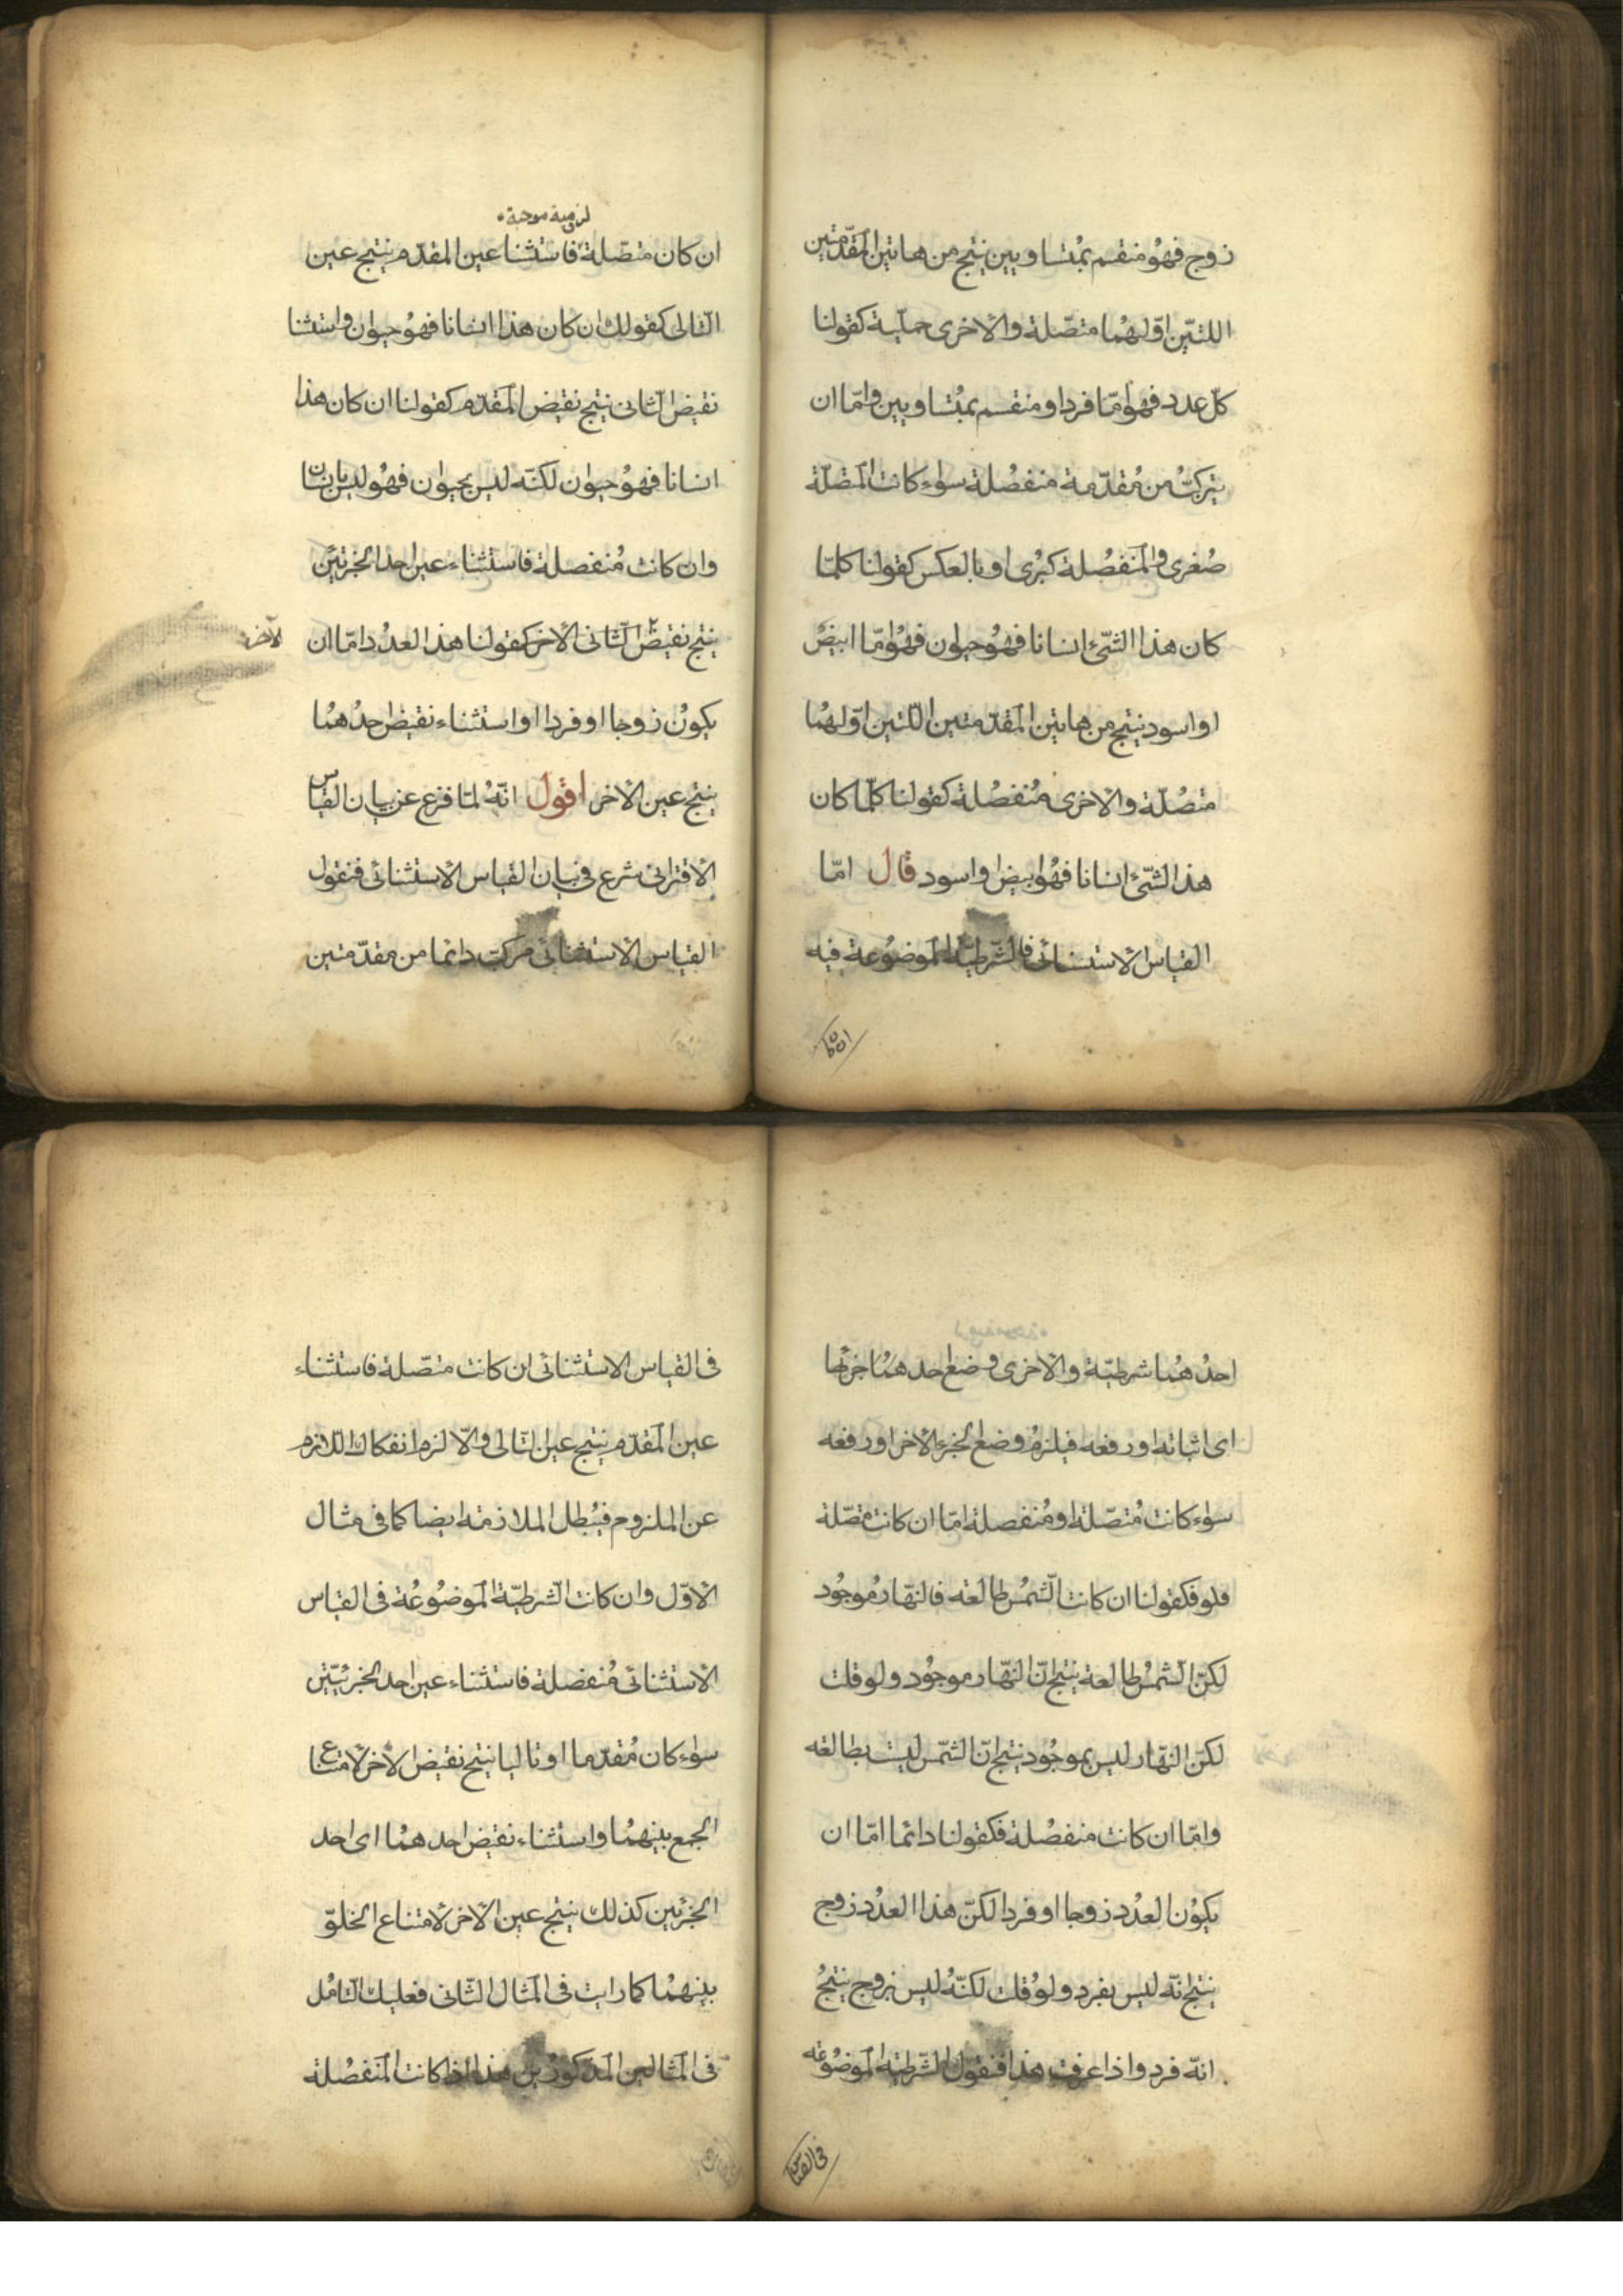 زوج فهو منقسم بمتساويين ينتج من هاتين المقدّمتين
اللتين اوّلهما متصّلة والاخرى حمليّة كقولنا
كلّ عدد فهو امّا فرد او منقسم بمتساويين وامّا ان
يتركبّ من مقدّمة منفصلة سواء كانت المتصّلة
صغرى والمنفصلة كبرى او بالعكس كقولنا كلمّا
كان هذا الشّئ انسانا فهو حيوان فهو امّا ابيض
او اسود ينتج من هاتين المقدّمتين اللّتين اوّلهما
متصّلة والاخرى منفصلة كقولنا كلمّا كان
هذا الشّئ انسانا فهو ابيض واسود قال امّا
القياس الاستسنائى فالشّرطيّة الموضوعة فيه
ان كان
لزومية موجبة
ان كان متصّلة فاستثنا عين المقدّم ينتج عين
التّالى كقولك ان كان هذا انسانا فهو حيوان واستثنا
نقيض الثّانى ينتج نقيض المقدّم كقولنا ان كان هذا
انسانا فهو حيوان لكنّه ليس بحيوان فهو ليس بانسان
وان كانت منفصلة فاستثناء عين احد الجزئين
ينتج نقيض الثّانى الاخر كقولنا هذا العدد امّا ان
الآخر
يكون زوجا او فردا او استثناء نقيض احدهما
ينتج عين الاخر اقول انّه لمّا فرع عن بيان القياس
الاقترانى شرع فى بيان القياس الاستثنائى فنقول
القياس الاستثنائى مركب دائما من مقدّمتين
احدهما شرطيّة والاخرى وضع احدهما جزئها
اى اثباته او رفعه فيلزم وضع الجزء الاخر او رفعه
سواء كانت متصّلة او منفصلة امّا ان كانت متصّلة
فلو فكقولنا ان كانت الشّمس طالعه فالنهّار موجود
لكنّ الشّمس طالعة ينتج انّ النهّار موجود ولو قلت
لكنّ النهّار ليس بموجود ينتج انّ الشّمس ليست بطالعه
وامّا ان كانت منفصلة فكقولنا دائما امّا ان
يكون العدد زوجا او فردا لكنّ هذا العدد زوج
ينتج انّه ليس بفرد ولو قلت لكنّه ليس بزوج ينتج
انّه فرد واذا عرفت هذا فنقول الشّرطيّة الموضوعه
فى القياس
فى القياس الاستثنائى ان كانت متصّلة فاستثناء
عين المقدّم ينتج عين التّالى والاّ لزم انفكاك اللاّزم
عن الملزوم فيبطل الملازمة ايضا كما فى مثال
الاوّل وان كانت الشّرطيّة الموضوعة فى القياس
الاستثنائى منفصلة فاستثناء عين احد الجزئيّين
سواء كان مقدّما او تاليا ينتج نقيض الاخر لامتناع
الجمع بينهما واستثناء نقيض احدهما اى احد
الجزئين كذلك ينتج عين الاخر لامتناع الخلوّ
بينهما كما رايت فى المثال الثّانى فعليك التّامل
فى المثالين المذكورين هذا اذا كانت المنفصلة